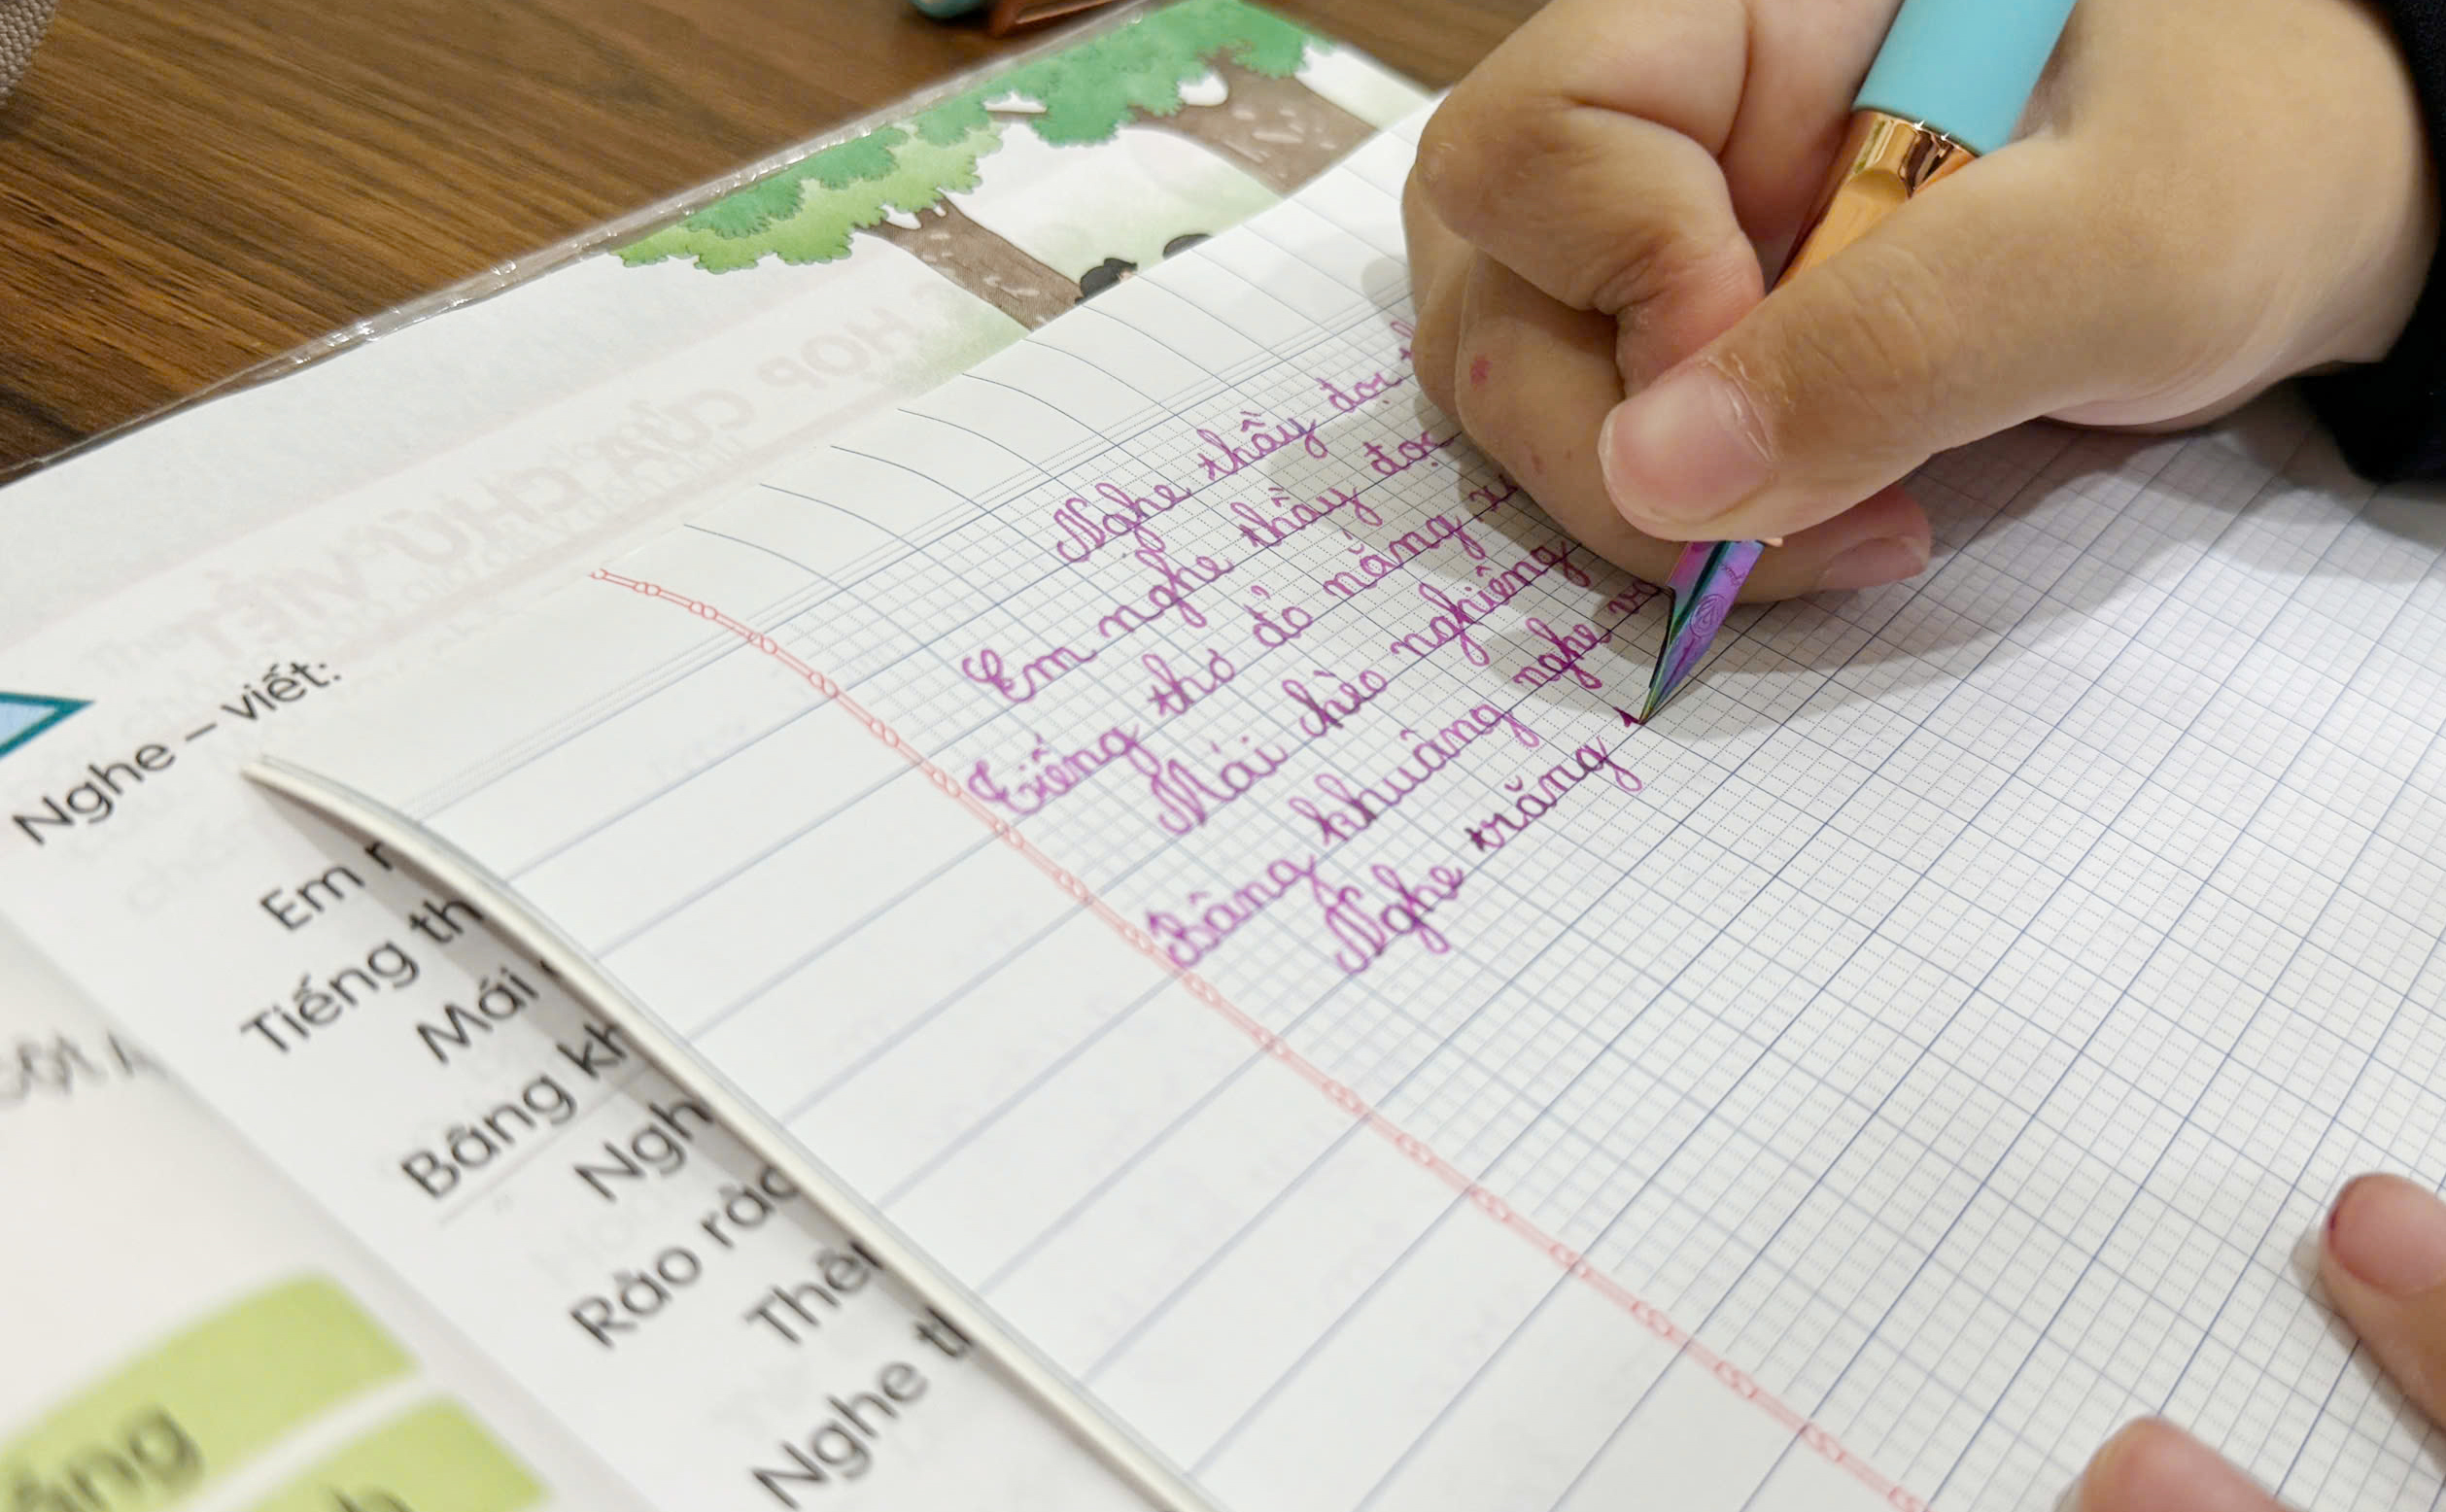 Nghe – viết:
Em
Tiếng th
Mái
Bâng kh
Ngh
Rào rào
Thê
Nghe t
Nghe thầy đọc
Em nghe thầy đọc
Tiếng thơ đỏ nắng x
Mái chèo nghiêng
Bâng khuâng nghe v
Nghe trăng